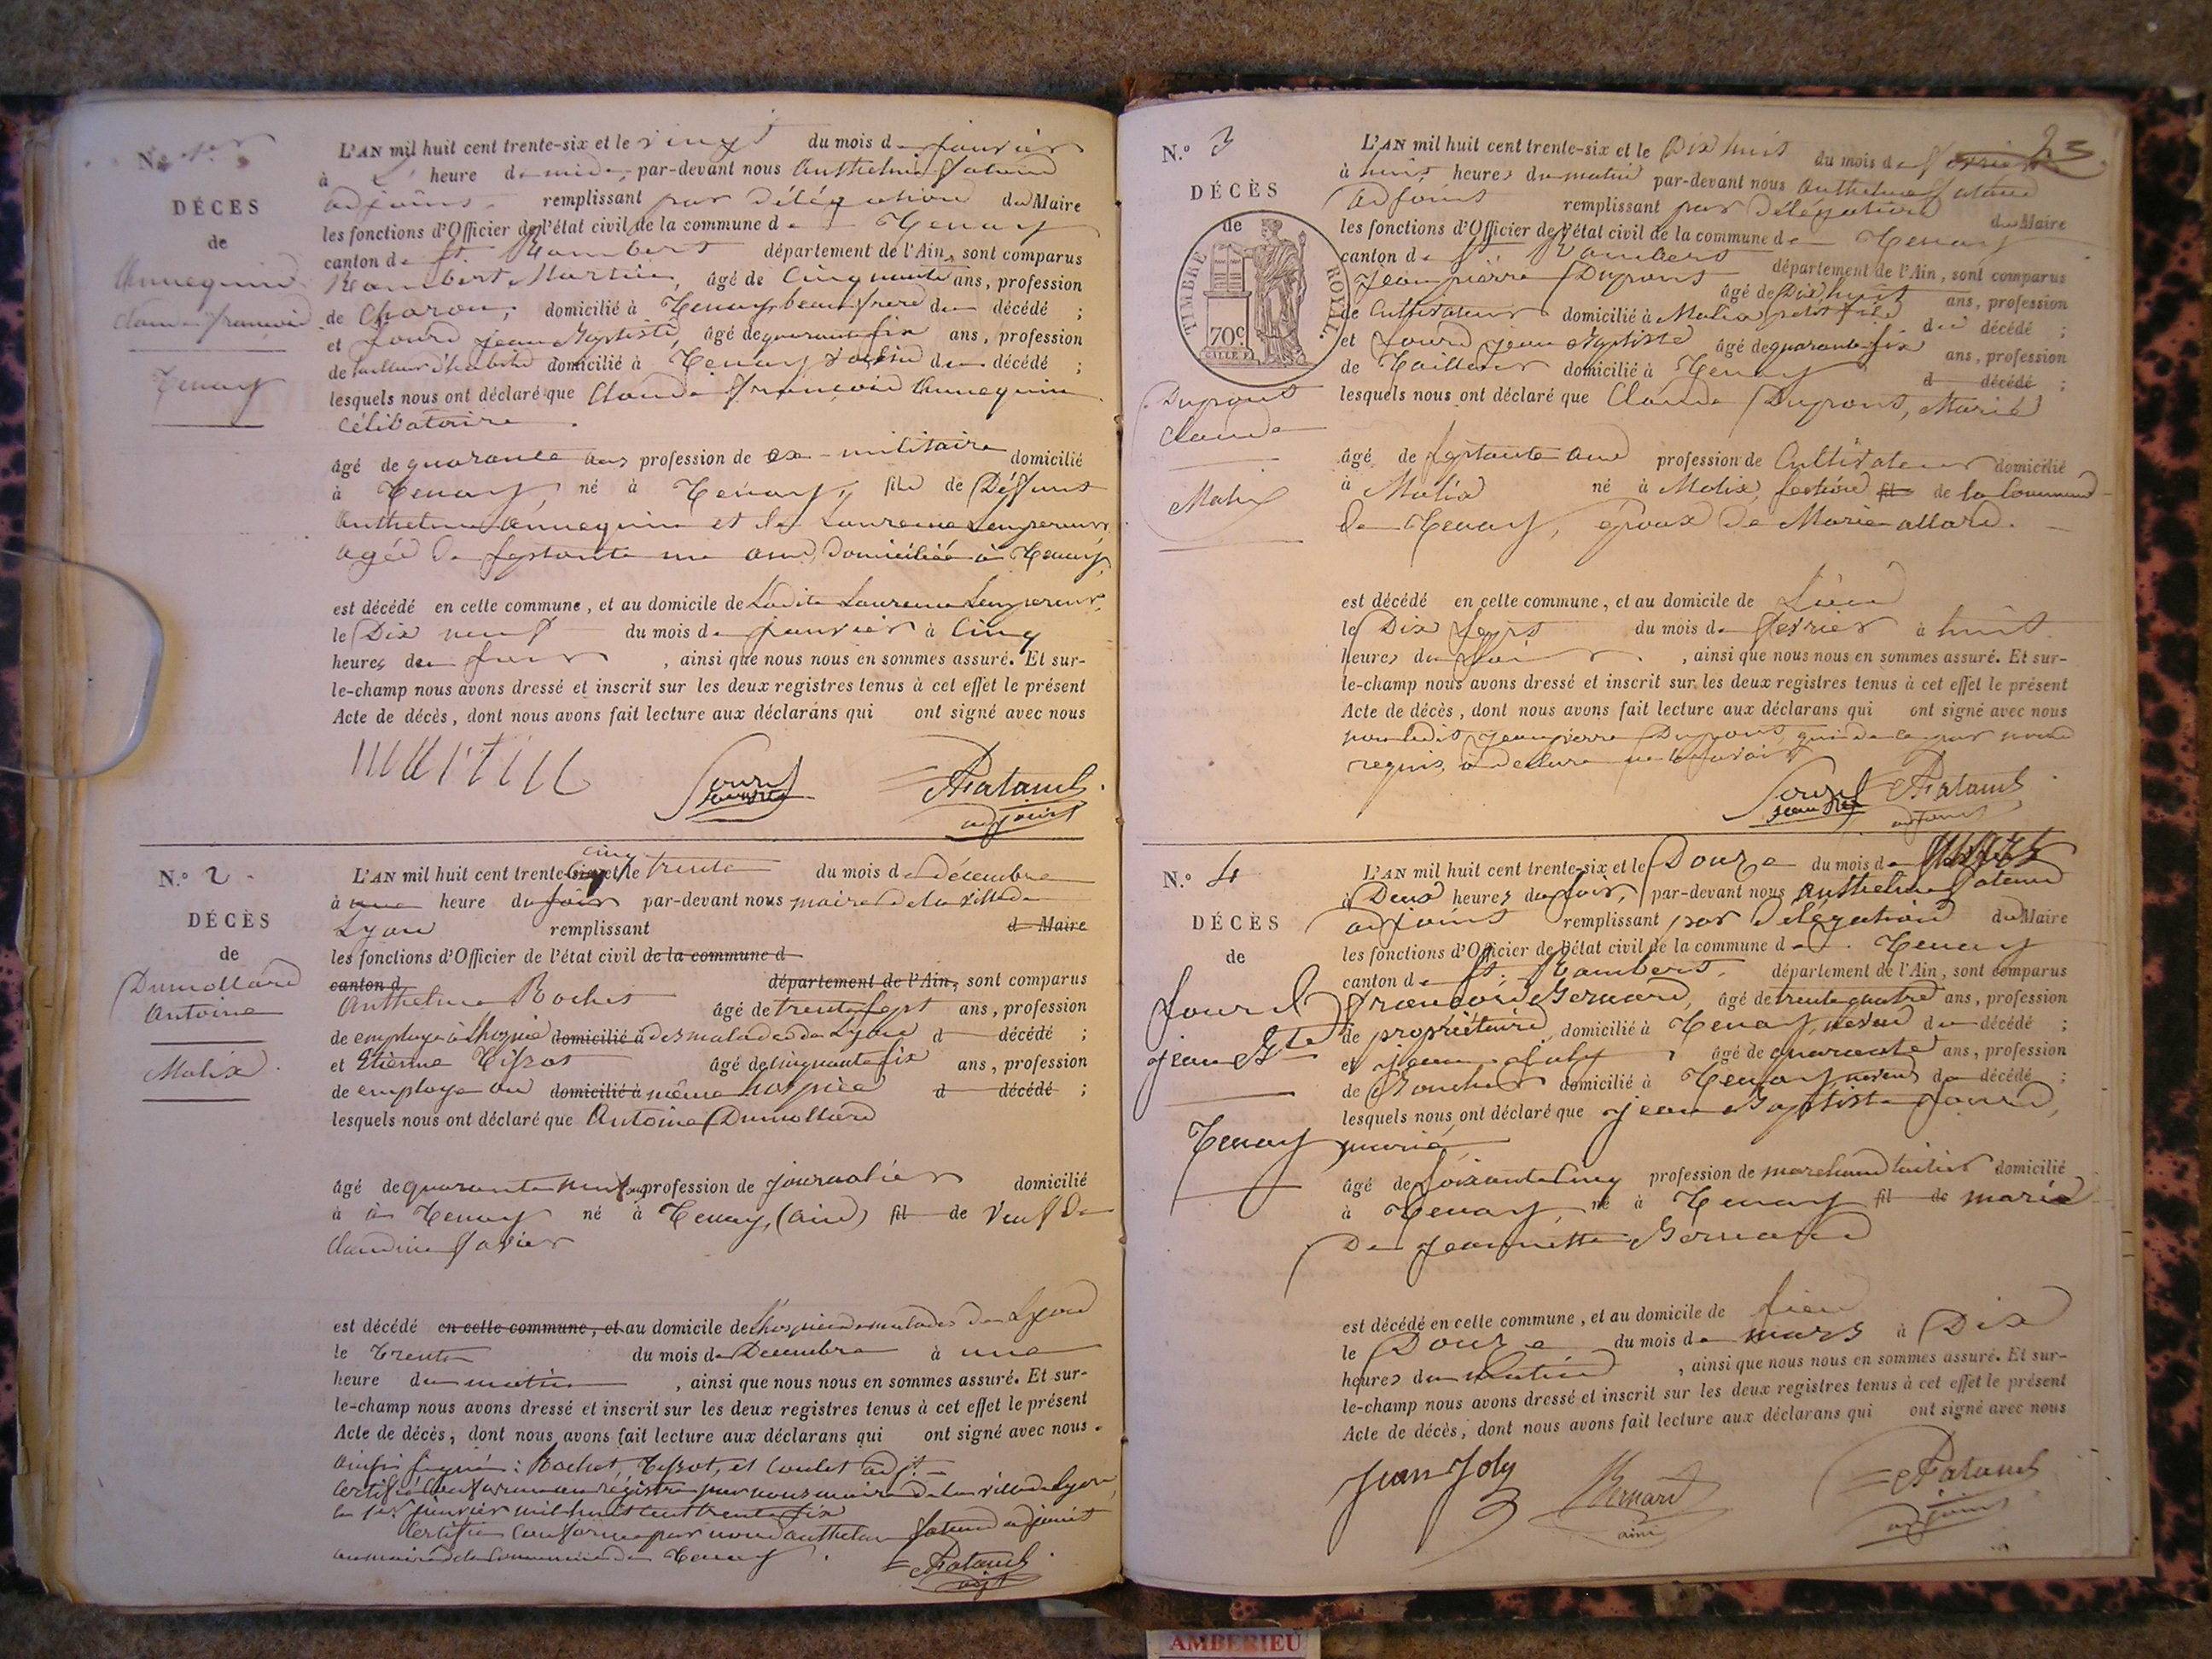 N.º 1er
DÉCES
de
Annequin
Claude françois
Tenay
L'AN mil huit cent trente-six et le vingt du mois de janvier
à heure de midi, par-devant nous Anthelme fatand
adjoint remplissant par délégation du Maire
les fonctions d'Officier de l'état civil de la commune de Tenay
canton de St. Rambert département de l'Ain, sont comparus
Rambert Martin, âgé de Cinquante ans, profession
de Charon, domicilié à Tenay, beau frere du décédé ;
et fourd jean Baptiste, âgé de quarante six ans, profession
de tailleur d'habits domicilié à Tenay voisin du décédé ;
lesquels nous ont déclaré que Claude françois Annequin
Célibataire
âgé de quarante ans profession de ex-militaire domicilié
à Tenay, né à Tenay, fils de Déffunt
Anthelme Annequin et de Laurence Lempereur
agée de septante un ans, domiciliée à Tenay,
est décédé en cette commune, et au domicile de Ladite Laurence Lempereur,
le Dix neuf du mois de janvier à Cinq
heures du soir, ainsi que nous nous en sommes assuré. Et sur-
le-champ nous avons dressé et inscrit sur les deux registres tenus à cet effet le présent
Acte de décès, dont nous avons fait lecture aux déclarans qui ont signé avec nous
martin
fourd
Fatand
adjoint
N.º 2
DÉCÈS
de
Dumollard
Antoine
Malix
cinq
L'AN mil huit cent trente-six et le trente du mois de décembre
à une heure du soir par-devant nous maire de la ville de
Lyon remplissant d Maire
les fonctions d'Officier de l'état civil de la commune d
canton d département de l'Ain, sont comparus
Anthelme Rochet âgé de trente sept ans, profession
de employé à l'hospice domicilié à des malades de Lyon d décédé ;
et Etienne Tissot âgé de cinquante six ans, profession
de employé au domicilié à même hospice d décédé ;
lesquels nous ont déclaré que Antoine Dumollard
âgé de quarante neuf ans profession de journalier domicilié
à à Tenay né à Tenay, (ain) fil de veuf de
Claudine favier
est décédé en cette commune, et au domicile de l'hospice des malades de Lyon
le trente du mois de Décembre à une
heure du matin, ainsi que nous nous en sommes assuré. Et sur-
le-champ nous avons dressé et inscrit sur les deux registres tenus à cet effet le présent
Acte de décès, dont nous avons fait lecture aux déclarans qui ont signé avec nous.
ainsi signé : Rochet, Tissot, et Coulet adjt.
Certifié Conforme au régistre par nous maire de la ville de Lyon,
le 1er janvier mil huit cent trente six
Certifié Conforme par nous anthelme fatand adjoint
au maire de la Commune de Tenay.
Fatand
adjt
N.º 3
DÉCÈS
de
TIMBRE ROYAL.
70c
Dupont
Claude
Malix
23
L'AN mil huit cent trente-six et le Dix huit du mois de février
à huit heures du matin par-devant nous Anthelme fatand
adjoint remplissant par délégation du Maire
les fonctions d'Officier de l'état civil de la commune de Tenay
canton de St. Rambert département de l'Ain, sont comparus
Jean pierre Dupont âgé de Dix huit ans, profession
de Cultivateur domicilié à Malix petit fils du décédé ;
et fourd jean Baptiste âgé de quarante six ans, profession
de Tailleur domicilié à Tenay d décédé ;
lesquels nous ont déclaré que Claude Dupont, Marié
âgé de septante ans profession de Cultivateur domicilié
à Malix né à Malix, section fil de la Commune
de Tenay, époux de Marie allard.
est décédé en cette commune, et au domicile de Sien
le Dix sept du mois de février à huit
heures du soir, ainsi que nous nous en sommes assuré. Et sur-
le-champ nous avons dressé et inscrit sur les deux registres tenus à cet effet le présent
Acte de décès, dont nous avons fait lecture aux déclarans qui ont signé avec nous
non ledit Jean pierre Dupont, qui de ce par nous
requis, a déclaré ne le savoir
fourd
jean Bte
Fatand
adjoint
N.º 4
DÉCÈS
de
fourd
jean Bte
Tenay
L'AN mil huit cent trente-six et le Douze du mois de mars
à Deux heures du soir, par-devant nous Anthelme fatand
adjoint remplissant par délégation du Maire
les fonctions d'Officier de l'état civil de la commune de Tenay
canton de St. Rambert. département de l'Ain, sont comparus
françois Bernard, âgé de trente quatre ans, profession
de propriétaire, domicilié à Tenay, neveu du décédé ;
et jean Joly, âgé de quarante ans, profession
de Boucher domicilié à Tenay neveu du décédé ;
lesquels nous ont déclaré que jean Baptiste fourd,
marié
âgé de soixante cinq profession de marchand domicilié
à Tenay, né à Tenay fil de marié
De Jeannette Bernard
est décédé en cette commune, et au domicile de sien
le Douze du mois de mars à Dix
heures du Matin, ainsi que nous nous en sommes assuré. Et sur-
le-champ nous avons dressé et inscrit sur les deux registres tenus à cet effet le présent
Acte de décès, dont nous avons fait lecture aux déclarans qui ont signé avec nous
Jean Joly
Bernard
ainé
Fatand
adjoint
AMBERIEU